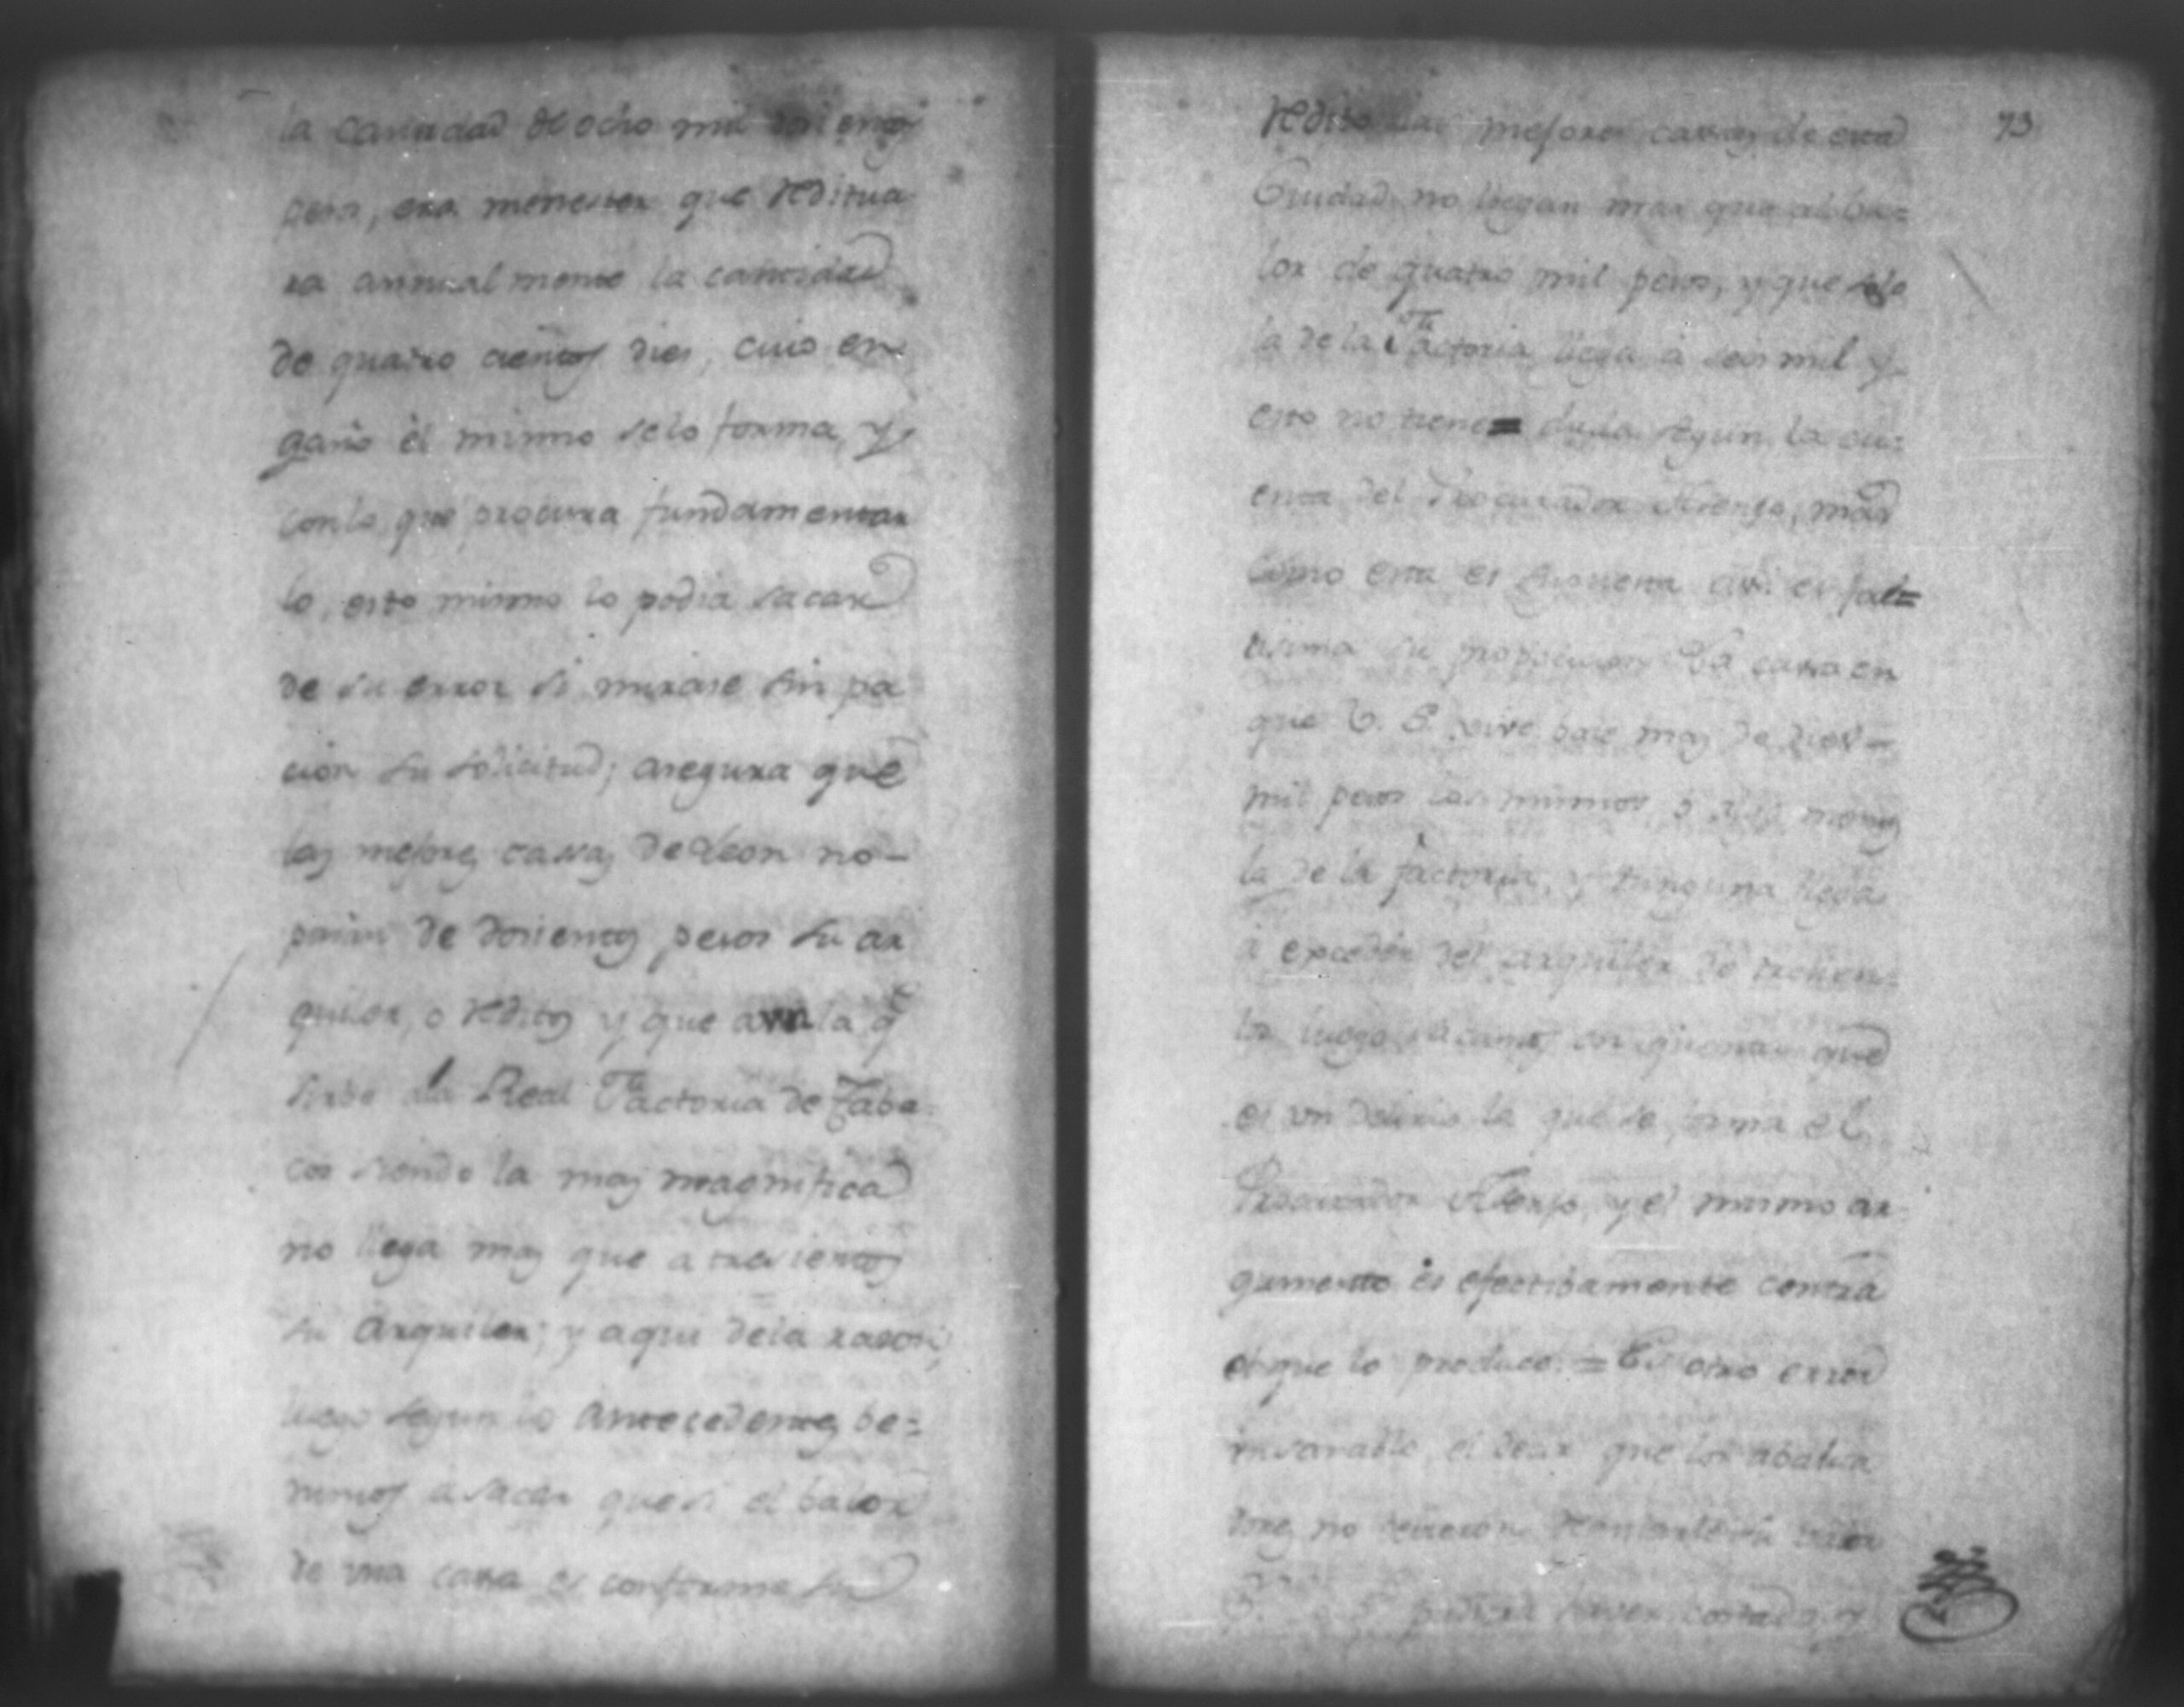 la cantidad de ocho mil dosientos
pesos, era menester que reditua
ra annual mente la cantidad
de quatro cientos dies, cuio en
gaño èl mismo selo forma, y
conlo que procura fundamentar
lo, esto mismo lo podia sacar
de su error si mirase sin pa
cion su solicitud; asegura que
las mejores cassas de Leon no-
pasan de dosientos pesos su ar
quiler, o reditos y que aun la q.e
sirbe ala Real Factoria de Taba-
cos siendo la mas magnifica
no llega mas que a tresientos
su Arquiler; y aqui dela rason,
luego segun los Antecedentes be=
nimos a sacar que si el balor
de una cassa es conforme su
73
redito las mejores cassas de esta
Ciudad no llegan mas que al ba=
lor de quatro mil pesos, y que solo
la de la Factoria llega à seis mil y
esto no tiene duda segun la cu=
enta del Procurador mas
como esta es asi es fal=
sisima su proposicion La cassa en
que V. S. vive bale mas de dies-
mil pesos los mismos, o mens
la de la factoria, y ninguna llega
à exceder del arquiler de tresien=
tos luego sacamos que
es un delirio la que se forma el
Procurador y el mismo ar-
gumento és efectibamente contra
el que lo produce. = Es otro error
el desir que los abalua
dores no
pudiera haver costado, y